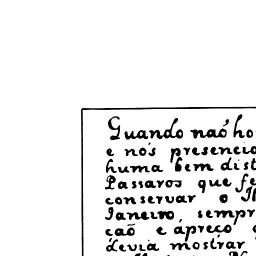 Quando naõ ho
e nós presencio
huma bem dist
Passaros que fe
conservar o Il
Janeiro, sempr
caõ e ápreço
devia mostrar